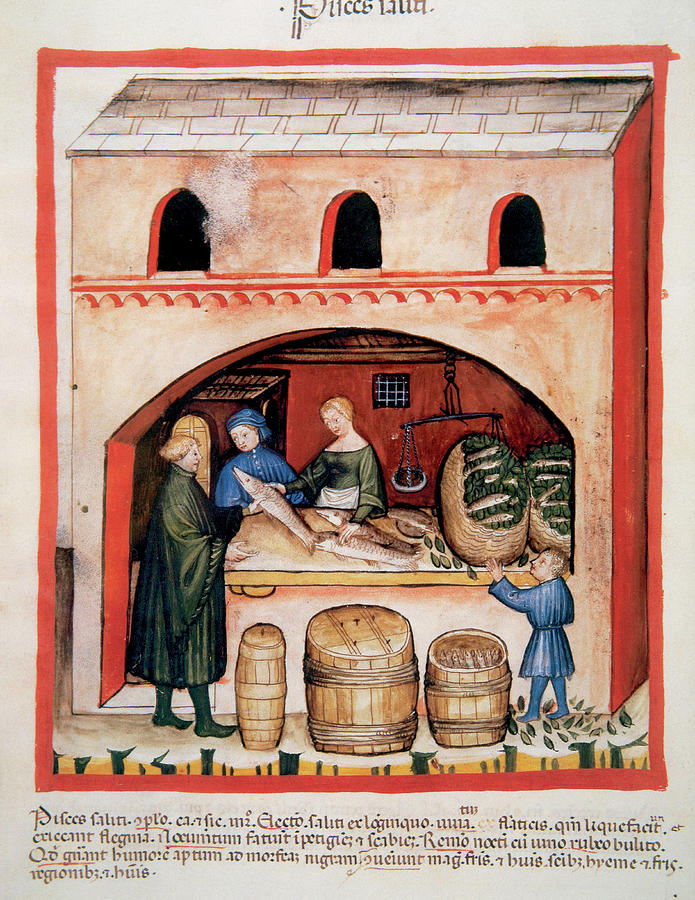 Pisces saliti.
Pisces saliti. ꝯplo. ca. ⁊ sic. in 2°. Electo. saliti ex longinquo. iuua tiu ex flaticis. qm̄ liquefaciūt. ⁊
exiccant flegma. Nocumentum faciunt ipetigines ⁊ scabiez. Remo nocti cū uino rubeo bulito.
Qd̓ gn̄ant humorē aptum ad morfeaz nigram. ꝯueiunt mag. fris. ⁊ huis. senibz. hyeme ⁊ fris.
regionibz. ⁊ huīs.